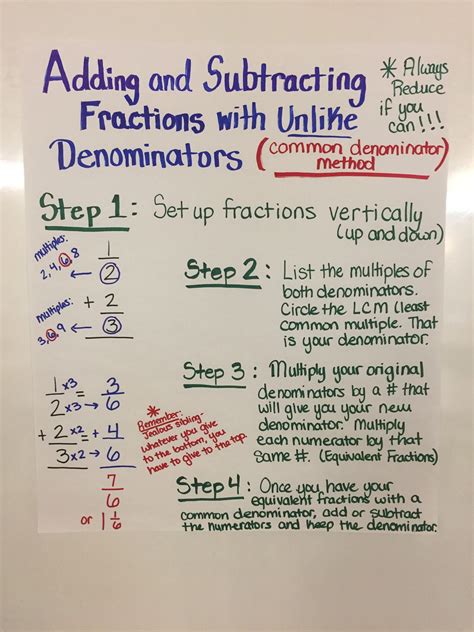 Adding and Subtracting
Fractions with Unlike
Denominators (common denominator)
method
* Always
Reduce
if you
can!!!
Step 1: Set up fractions vertically
(up and down)
multiples:
2,4,6,8 ← 1/2
multiples:
3,6,9 ← + 2/3
Step 2: List the multiples of
both denominators.
Circle the LCM (least
common multiple. That
is your denominator.
Step 3: Multiply your original
denominators by a # that
will give you your new
denominator. Multiply
each numerator by that
same #. (Equivalent Fractions)
1 x3 = 3
2 x3 → 6
+ 2 x2 = + 4
3 x2 → 6
7
6
or 1 1/6
*
Remember:
Jealous sibling-
whatever you give
to the bottom, you
have to give to the top.
Step 4: Once you have your
equivalent fractions with a
common denominator, add or subtract
the numerators and keep the denominator.